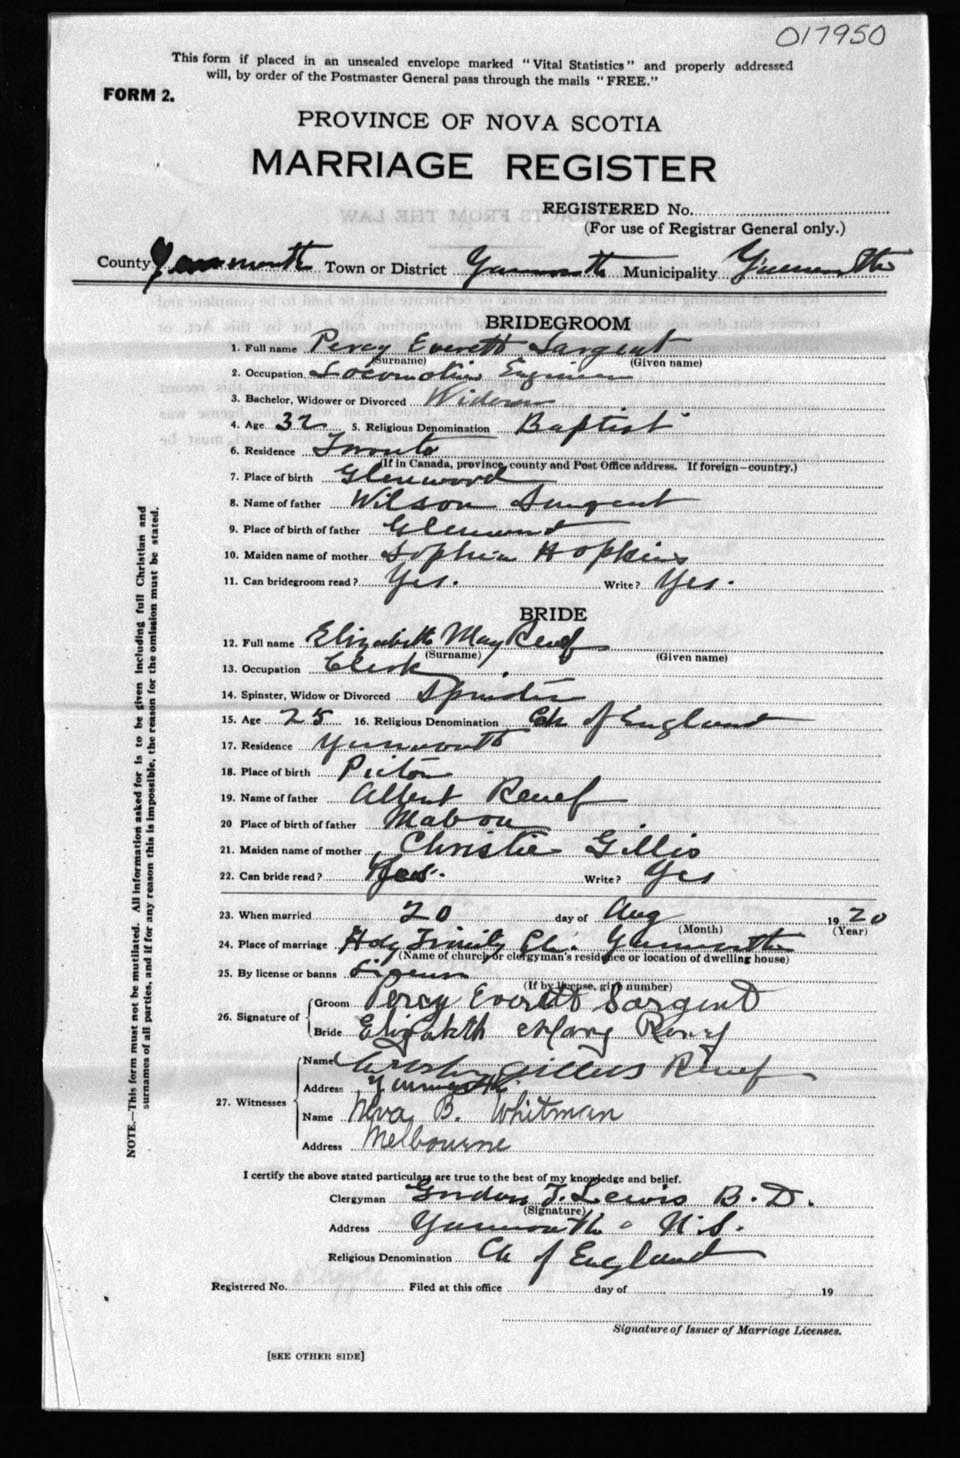 017950
This form if placed in an unsealed envelope marked "Vital Statistics" and properly addressed
will, by order of the Postmaster General pass through the mails "FREE."
FORM 2.
PROVINCE OF NOVA SCOTIA
MARRIAGE REGISTER
REGISTERED No.
(For use of Registrar General only.)
County Yarmouth Town or District Yarmouth Municipality Yarmouth
BRIDEGROOM
1. Full name Percy Everett Sargent
(Surname) (Given name)
2. Occupation Locomotive Engineer
3. Bachelor, Widower or Divorced Widower
4. Age 32 5. Religious Denomination Baptist
6. Residence Toronto
(If in Canada, province, county and Post Office address. If foreign—country.)
7. Place of birth Glenwood
8. Name of father Wilson Sargent
9. Place of birth of father Glenwood
10. Maiden name of mother Sophia Hopkins
11. Can bridegroom read? Yes. Write? Yes.
BRIDE
12. Full name Elizabeth May Renef
(Surname) (Given name)
13. Occupation Clerk
14. Spinster, Widow or Divorced Spinster
15. Age 25 16. Religious Denomination Ch of England
17. Residence Yarmouth
18. Place of birth Picton
19. Name of father Albert Renef
20 Place of birth of father Mabou
21. Maiden name of mother Christie Gillis
22. Can bride read? Yes. Write? Yes
23. When married 20 day of Aug 1920
(Month) (Year)
24. Place of marriage Holy Trinity Ch. Yarmouth
(Name of church or clergyman's residence or location of dwelling house)
25. By license or banns License
(If by license, give number)
26. Signature of
Groom Percy Everett Sargent
Bride Elizabeth Mary
27. Witnesses
Name Gillis Renef
Address Yarmouth
Name Neva B. Whitman
Address Melbourne
I certify the above stated particulars are true to the best of my knowledge and belief.
Clergyman Gordon T. Lewis B. D.
(Signature)
Address Yarmouth N.S.
Religious Denomination Ch of England
Registered No. Filed at this office day of 19
Signature of Issuer of Marriage Licenses.
[SEE OTHER SIDE]
NOTE.—This form must not be mutilated. All information asked for is to be given including full Christian and
surnames of all parties, and if for any reason this is impossible, the reason for the omission must be stated.